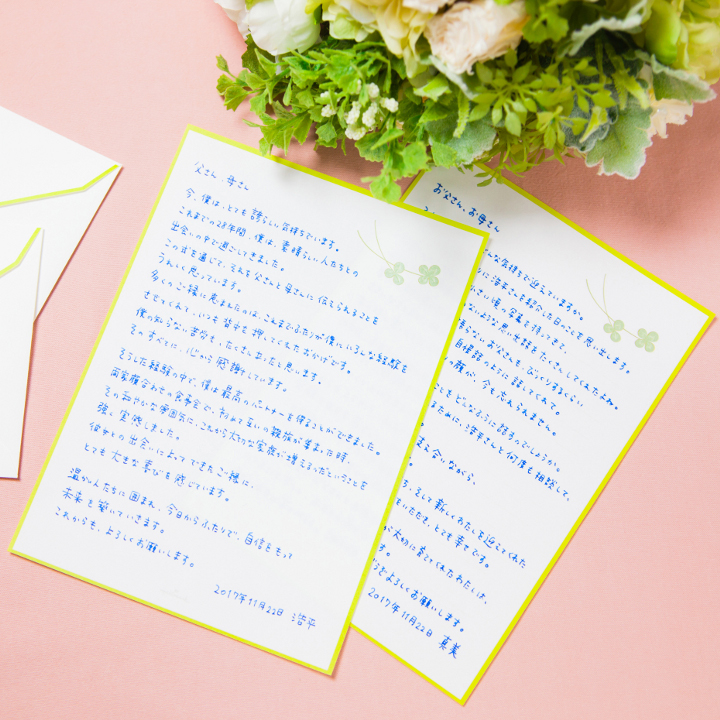 父さん、母さん
今、僕は、とても誇らしい気持ちでいます。
これまでの28年間、僕は、素晴らしい人たちとの
出会いの中で過ごしてきました。
この式を通じて、それを父さんと母さんに伝えられることを
うれしく思っています。
多くのご縁に恵まれたのは、これまでふたりが僕にいろんな経験を
させてくれて、いつも背中を押してくれたおかげです。
僕の知らない苦労も、たくさんあったと思います。
そのすべてに、心から感謝しています。
そうした経験の中で、僕は最高のパートナーを得ることができました。
両家顔合わせの食事会で、初めて互いの親族が集まった時、
その和やかな雰囲気に、これから大切な家族が増えるのだということを
強く実感しました。
彼女との出会いによってできたご縁に、
とても大きな喜びを感じています。
温かい人たちに囲まれ、今日からふたりで、自信をもって
未来を築いていきます。
これからも、よろしくお願いします。
2017年11月22日 浩平
お父さん、お母さん
んな気持ちで迎えていますか。
に浩平さんを紹介した日のことを思い出します。
小さい頃の写真を持ってきて、
ような思い出話をたくさんしてくれたよね。
さないお父さんも、びっくりするくらい
自慢話のように話してくれて。
い顔が、今も忘れられません。
ことをどんなふうに話すのでしょうか。
ために、浩平さんと何度も相談して、
支え合いながら、
す。そして新しくわたしを迎えてくれた
をいただき、とても幸せです。
が大切に育ててくれたわたしは、
す。
うぞよろしくお願いします。
2017年11月22日 真美